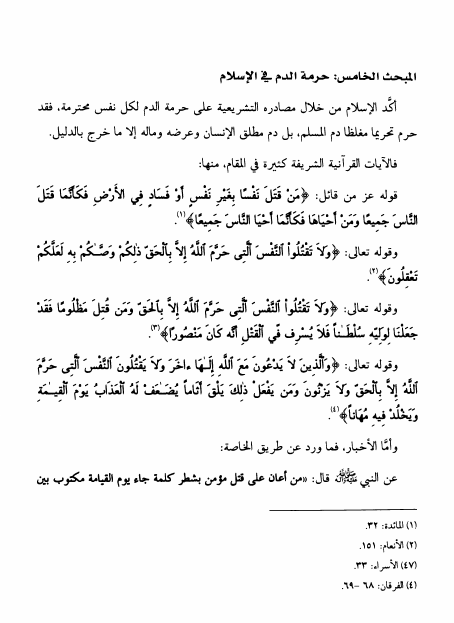 المبحث الخامس: حرمة الدم في الإسلام
أكَّد الإسلام من خلال مصادره التشريعية على حرمة الدم لكل نفس محترمة، فقد
حرم تحريما مغلظا دم المسلم، بل دم مطلق الإنسان وعرضه وماله إلا ما خرج بالدليل.
فالآيات القرآنية الشريفة كثيرة في المقام، منها:
قوله عز من قائل: ﴿مَنْ قَتَلَ نَفْسًا بِغَيْرِ نَفْسٍ أَوْ فَسَادٍ فِي الأَرْضِ فَكَأَنَّمَا قَتَلَ
النَّاسَ جَمِيعًا وَمَنْ أَحْيَاهَا فَكَأَنَّمَا أَحْيَا النَّاسَ جَمِيعًا﴾(١).
وقوله تعالى: ﴿وَلاَ تَقْتُلُواْ النَّفْسَ الَّتِى حَرَّمَ اللَّهُ إِلاَّ بِالْحَقِّ ذَلِكُمْ وَصَّـٰكُمْ بِهِ لَعَلَّكُمْ
تَعْقِلُونَ﴾(٢).
وقوله تعالى: ﴿وَلاَ تَقْتُلُواْ النَّفْسَ الَّتِى حَرَّمَ اللَّهُ إِلاَّ بِالحَقِّ وَمَن قُتِلَ مَظْلُومًا فَقَدْ
جَعَلْنَا لِوَلِيِّهِ سُلْطَـٰناً فَلاَ يُسْرِف فِّي الْقَتْلِ أِنَّه كَانَ مَنْصُورًا﴾(٣).
وقوله تعالى: ﴿وَالَّذِينَ لاَ يَدْعُونَ مَعَ اللَّهِ إِلَـٰهَا ءاخَرَ وَلاَ يَقْتُلُونَ النَّفْسَ الَّتِى حَرَّمَ
اللَّهُ إِلاَّ بِالْحَقِّ وَلاَ يَزْنُونَ وَمَن يَفْعَلْ ذٰلِكَ يَلْقَ أَثَاماً يُضَـٰعَفْ لَهُ الْعَذَابُ يَوْمَ الْقِيـٰمَةِ
وَيَخْلُدْ فِيهِ مُهَاناً﴾(٤).
وأمَّا الأخبار، فما ورد عن طريق الخاصة:
عن النبي ﷺ قال: «من أعان على قتل مؤمن بشطر كلمة جاء يوم القيامة مكتوب بين
(١) المائدة: ٣٢.
(٢) الأنعام: ١٥١.
(٤٧) الأسراء: ٣٣.
(٤) الفرقان: ٦٨ –٦٩.